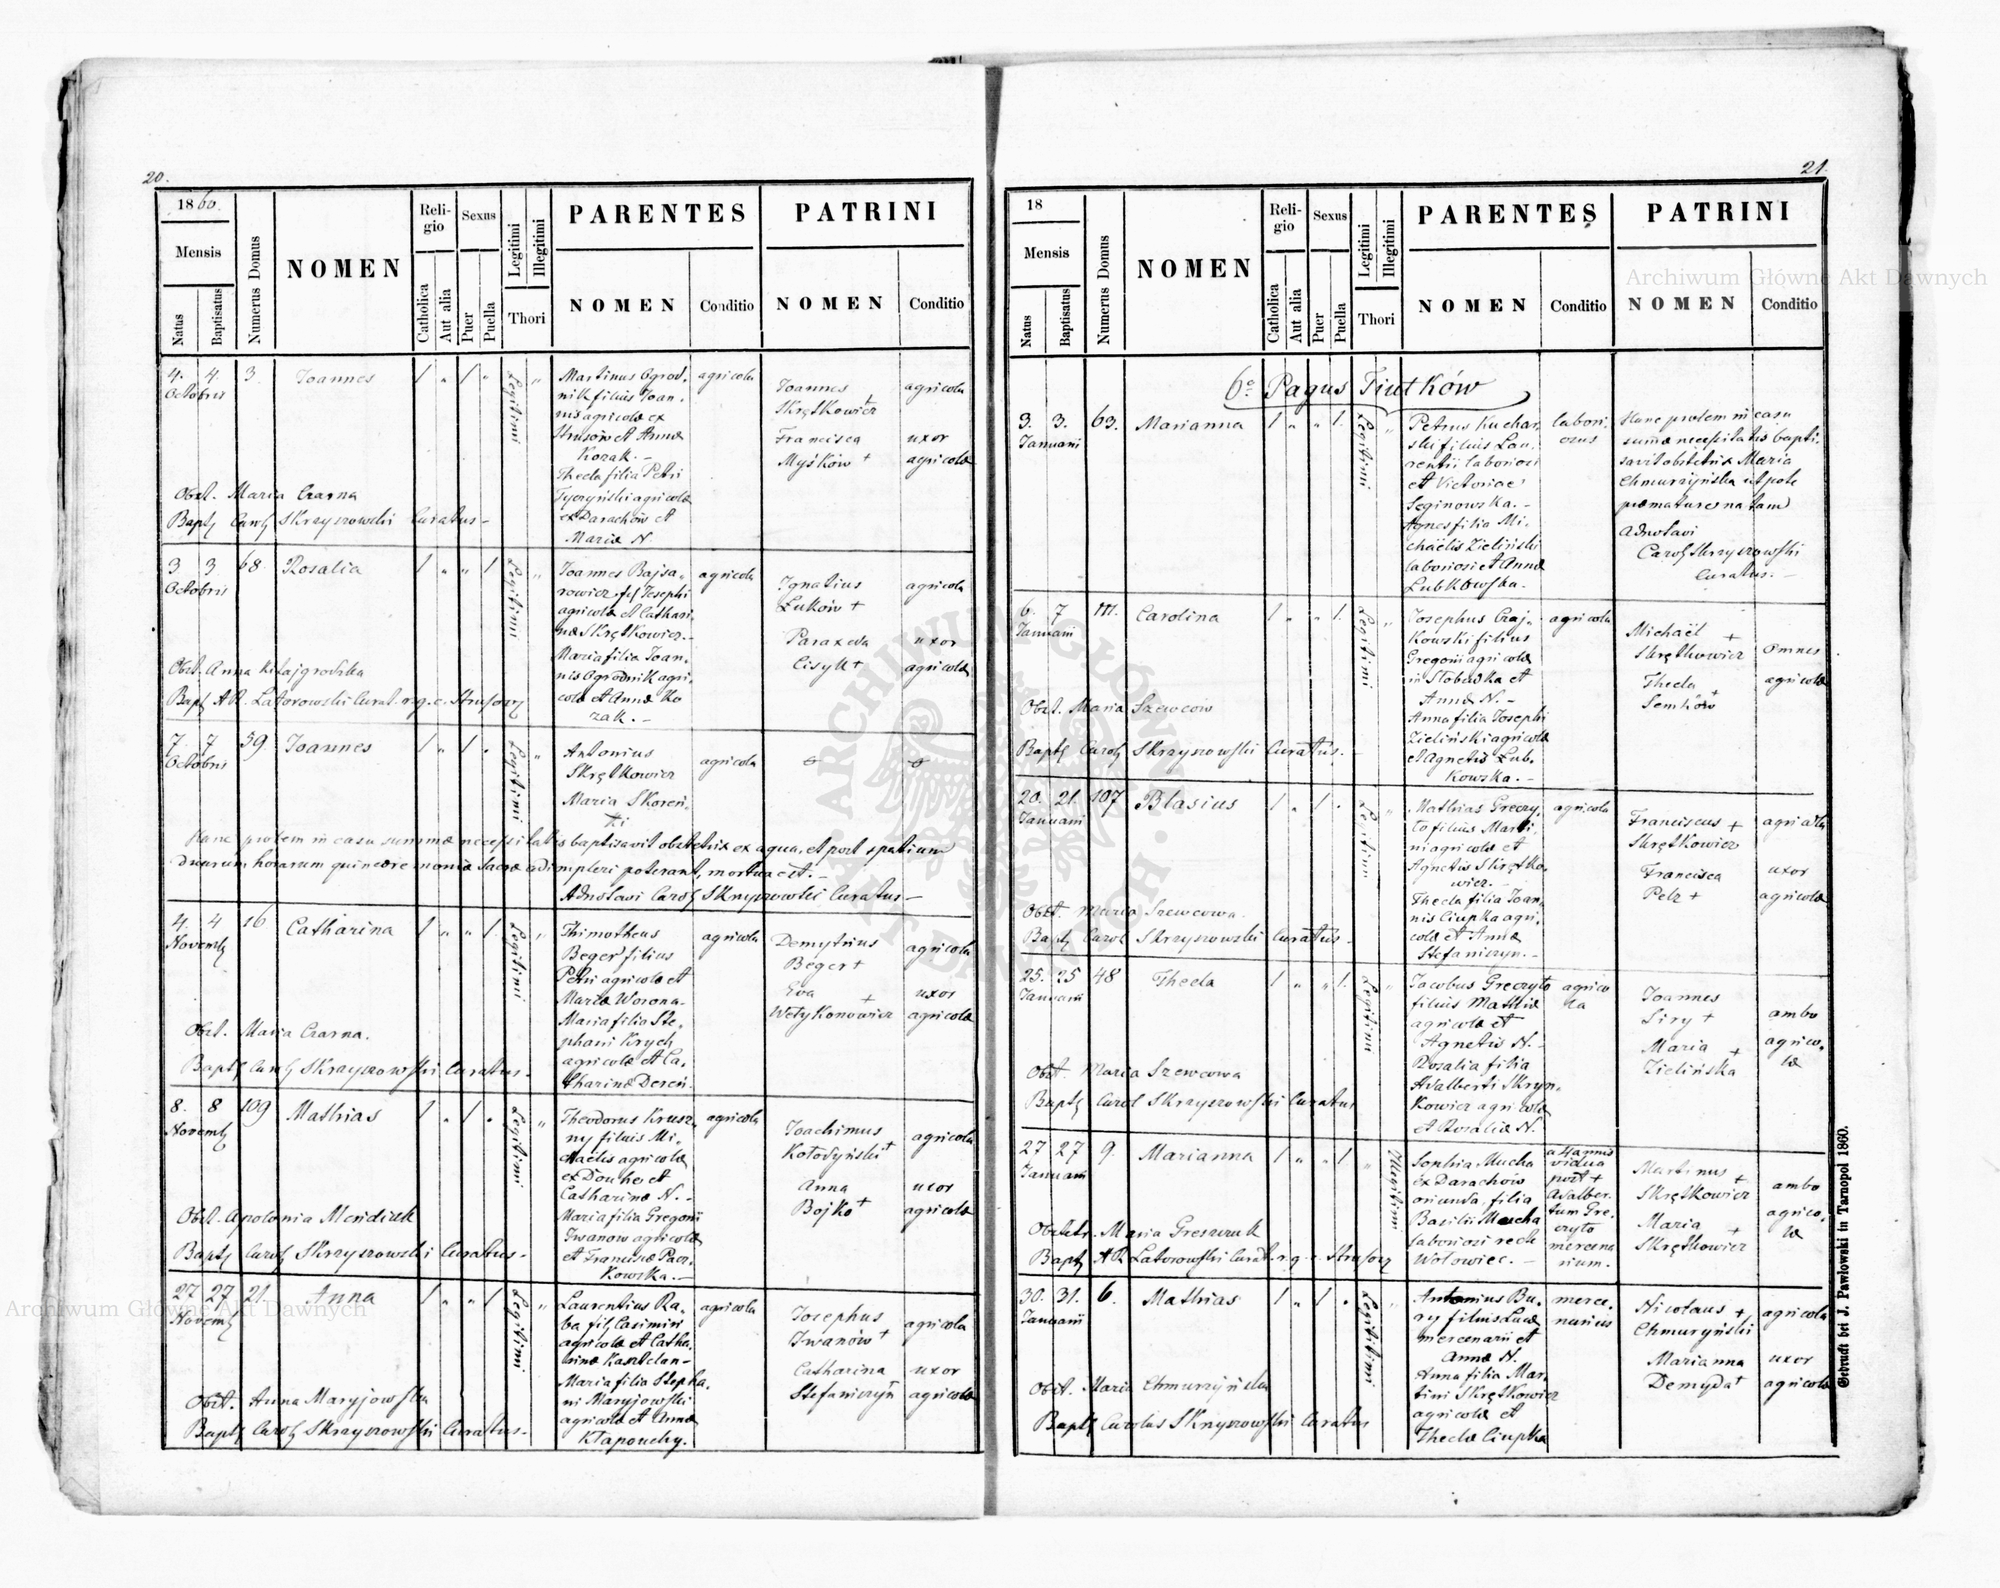 20.
1860.
Mensis
Natus
Baptisatus
Numerus Domus
NOMEN
Religio
Catholica
Aut alia
Sexus
Puer
Puella
Legitimi
Illegitimi
Thori
PARENTES
NOMEN
Conditio
PATRINI
NOMEN
Conditio
4. 4. 3. Joannes 1 „ 1 „ Legitimi „
Octobris
Martinus Ogrod-
nik filius Joan-
nis agricolæ ex
Strusów et Annæ
Kozak. -
Thecla filia Petri
Tyczyński agricolæ
ex Darachów et
Mariæ N.
agricola
Joannes
Skrętkowicz +
Francisca
Myśków +
agricola
uxor
agricolæ
Obst. Maria Czarna
Bapt Carol Skrzyszowski Curatus -
3 3 68. Rosalia 1 „ „ 1 Legitimi „
Octobris
Joannes Bajsa-
rowicz fil Josephi
agricolæ et Cathari-
næ Skrętkowicz. -
Maria filia Joan-
nis Ogrodnik agri-
colæ et Annæ Ko
zak. -
agricola
Ignatius
Łuków +
Paraxeda
Cisyk +
agricola
uxor
agricolæ
Obst. Anna Kitajgrodzka
Bapt A R. Latorowski Curat. r. g. e. Strusov
7 7 59 Joannes 1 „ 1 „ Legitimi „
Octobris
Antonius
Skrętkowicz
Maria Skoreń-
ki
agricola
Hanc prolem in casu summæ necessitatis baptisavit obstetrix ex aqua, et post spatium
duarum horarum quin ceremoniæ sacræ adimpleri poterant, mortua est. -
Adnotavi Carol Skrzyszowski Curatus -
4. 4 16 Catharina 1 „ „ 1. Legitimi „
Novemb
Thimotheus
Beger filius
Petri agricolæ et
Mariæ Worona -
Maria filia Ste-
phani Krych
agricolæ et Ca-
tharinæ Dereń.
agricola
Demytrius
Beger +
Eva +
Wetykonowicz
agricola
uxor
agricolæ
Obst. Maria Czarna.
Bapt Carol Skrzyszowski Curatus -
8. 8 109 Mathias 1 „ 1 „ Legitimi „
Novemb
Theodorus Krusz-
ny filius Mi-
chaelis agricolæ
ex Douhe et
Catharinæ N. -
Maria filia Gregorii
Iwanow agricolæ
et Franciscæ Pacz-
kowska. -
agricola
Joachimus
Kołodyński +
Anna
Bojko +
agricola
uxor
agricolæ
Obst. Apolonia Mendiuk
Bapt Carol Skrzyszowski Curatus -
27 27 21. Anna 1 „ „ 1 Legitimi „
Novemb
Laurentius Ra-
ba fil Casimiri
agricolæ et Catha-
rinæ Kasztelan -
Maria filia Stepha-
ni Maryjowski
agricolæ et Annæ
Kłapouchy.
agricola
Josephus
Iwanów +
Catharina
Stefaniszyn +
agricola
uxor
agricolæ
Obst. Anna Maryjowska
Bapt Carol Skrzyszowski Curatus -
21.
18
Mensis
Natus
Baptisatus
Numerus Domus
NOMEN
Religio
Catholica
Aut alia
Sexus
Puer
Puella
Legitimi
Illegitimi
Thori
PARENTES
NOMEN
Conditio
PATRINI
NOMEN
Conditio
6o Pagus Tiutków
3. 3. 63. Marianna 1 „ „ 1. Legitimi „
Januarii
Petrus Kuchar-
ski filius Lau-
rentii laboriosi
et Victoriae
Seginowska. -
Agnes filia Mi-
chaëlis Zieliński
laboriosi et Annæ
Lubkowska. -
labori-
osus
Hanc prolem in casu
summæ necessitatis bapti-
savit obstetrix Maria
Chmurzyńska utpote
præmature natam
Adnotavi
Carol Skrzyszowski
Curatus. -
6. 7 111. Carolina 1 „ „ 1. Legitimi „
Januarii
Josephus Czaj-
kowski filius
Gregorii agricolæ
in Słobudka et
Annæ N. -
Anna filia Josephi
Zieliński agricolæ
et Agnetis Lub-
kowska. -
agricola
Michaël +
Skrętkowicz
Thecla +
Semków
omnes
agricolæ
Obst. Maria Szewcow
Bapt Carol Skrzyszowski Curatus. -
20. 21. 107 Blasius 1 „ 1 „ Legitimi „
Januarii
Mathias Greczy-
to filius Marti-
ni agricolæ et
Agnetis Skrętko-
wicz. -
Thecla filia Joan-
nis Ciupka agri-
colæ et Annæ
Stefaniszyn. -
agricola
Franciscus +
Skrętkowicz
Francisca
Pelz +
agricola
uxor
agricolæ
Obst. Maria Szewcowa.
Bapt Carol Skrzyszowski Curatus -
25. 25 48 Thecla 1 „ „ 1. Legitimi „
Januarii
Jacobus Greczyto
filius Mathiæ
agricolæ et
Agnetis N. -
Rosalia filia
Adalberti Skryn-
kowicz agricolæ
et Rosaliæ N.
agrico
la
Joannes
Siry +
Maria +
Zielińska
ambo
agrico-
læ
Obst. Maria Szewcowa
Bapt Carol Skrzyszowski Curatus
27 27 9. Marianna 1 „ „ 1 „ Illegitimi
Januarii
Sophia Mucha
ex Darachow
oriunda, filia
Basilii Mucha
laboriosi recte
Wołowiec. -
a 4 annis
vidua
post +
Adalber-
tum Gre-
czyto
mercena
rium.
Martinus +
Skrętkowicz
Maria +
Skrętkowicz
ambo
agrico-
læ
Obstetr. Maria Greszczuk
Bapt A R Latorowski Curat. r. g. e. Strusov
30. 31. 6. Mathias 1 „ 1 „ Legitimi „
Januarii
Antonius Bu-
ry filius Lucæ
mercenarii et
Annæ N.
Anna filia Mar-
tini Skrętkowicz
agricolæ et
Theclæ Ciupka
merce-
narius
Nicolaus +
Chmuryński
Marianna
Demyda +
agricola
uxor
agricolæ
Obst. Maria Chmurzyńska
Bapt Carolus Skrzyszowski Curatus
Gedruckt bei J. Pawlowski in Tarnopol 1860.
Archiwum Główne Akt Dawnych
Archiwum Główne Akt Dawnych
ARCHIWUM GŁÓWNE AKT DAWNYCH